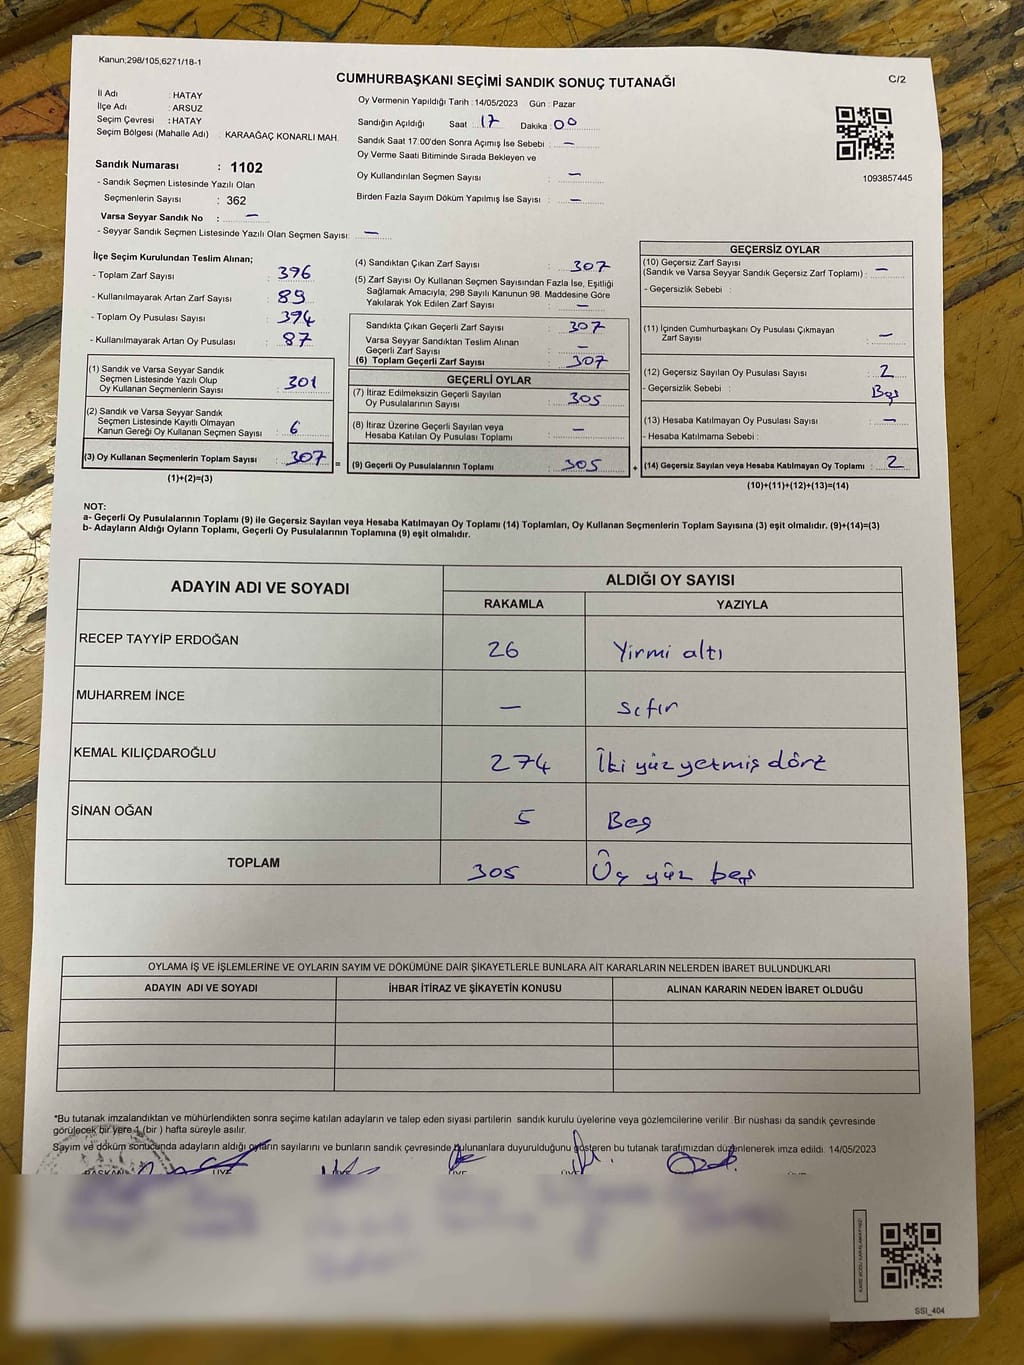 Kanun;298/105,6271/18-1
CUMHURBAŞKANI SEÇİMİ SANDIK SONUÇ TUTANAĞI
C/2
İl Adı : HATAY
İlçe Adı : ARSUZ
Seçim Çevresi : HATAY
Seçim Bölgesi (Mahalle Adı) : KARAAĞAÇ KONARLI MAH.
Sandık Numarası : 1102
- Sandık Seçmen Listesinde Yazılı Olan
Seçmenlerin Sayısı : 362
Varsa Seyyar Sandık No : —
- Seyyar Sandık Seçmen Listesinde Yazılı Olan Seçmen Sayısı: —
Oy Vermenin Yapıldığı Tarih : 14/05/2023 Gün : Pazar
Sandığın Açıldığı Saat : 17 Dakika : 00
Sandık Saat 17:00'den Sonra Açımış İse Sebebi : —
Oy Verme Saati Bitiminde Sırada Bekleyen ve
Oy Kullandırılan Seçmen Sayısı : —
Birden Fazla Sayım Döküm Yapılmış İse Sayısı : —
1093857445
İlçe Seçim Kurulundan Teslim Alınan;
- Toplam Zarf Sayısı : 396
- Kullanılmayarak Artan Zarf Sayısı : 89
- Toplam Oy Pusulası Sayısı : 394
- Kullanılmayarak Artan Oy Pusulası : 87
(1) Sandık ve Varsa Seyyar Sandık
Seçmen Listesinde Yazılı Olup
Oy Kullanan Seçmenlerin Sayısı : 301
(2) Sandık ve Varsa Seyyar Sandık
Seçmen Listesinde Kayıtlı Olmayan
Kanun Gereği Oy Kullanan Seçmen Sayısı : 6
(3) Oy Kullanan Seçmenlerin Toplam Sayısı : 307 =
(1)+(2)=(3)
(4) Sandıktan Çıkan Zarf Sayısı : 307
(5) Zarf Sayısı Oy Kullanan Seçmen Sayısından Fazla İse, Eşitliği
Sağlamak Amacıyla; 298 Sayılı Kanunun 98. Maddesine Göre
Yakılarak Yok Edilen Zarf Sayısı : —
Sandıkta Çıkan Geçerli Zarf Sayısı : 307
Varsa Seyyar Sandıktan Teslim Alınan
Geçerli Zarf Sayısı : —
(6) Toplam Geçerli Zarf Sayısı : 307
GEÇERLİ OYLAR
(7) İtiraz Edilmeksizin Geçerli Sayılan
Oy Pusulalarının Sayısı : 305
(8) İtiraz Üzerine Geçerli Sayılan veya
Hesaba Katılan Oy Pusulası Toplamı : —
(9) Geçerli Oy Pusulalarının Toplamı : 305 +
GEÇERSİZ OYLAR
(10) Geçersiz Zarf Sayısı
(Sandık ve Varsa Seyyar Sandık Geçersiz Zarf Toplamı) : —
- Geçersizlik Sebebi :
(11) İçinden Cumhurbaşkanı Oy Pusulası Çıkmayan
Zarf Sayısı : —
(12) Geçersiz Sayılan Oy Pusulası Sayısı : 2
- Geçersizlik Sebebi : Boş
(13) Hesaba Katılmayan Oy Pusulası Sayısı : —
- Hesaba Katılmama Sebebi :
(14) Geçersiz Sayılan veya Hesaba Katılmayan Oy Toplamı : 2
(10)+(11)+(12)+(13)=(14)
NOT:
a- Geçerli Oy Pusulalarının Toplamı (9) ile Geçersiz Sayılan veya Hesaba Katılmayan Oy Toplamı (14) Toplamları, Oy Kullanan Seçmenlerin Toplam Sayısına (3) eşit olmalıdır. (9)+(14)=(3)
b- Adayların Aldığı Oyların Toplamı, Geçerli Oy Pusulalarının Toplamına (9) eşit olmalıdır.
ADAYIN ADI VE SOYADI
ALDIĞI OY SAYISI
RAKAMLA YAZIYLA
RECEP TAYYİP ERDOĞAN 26 Yirmi altı
MUHARREM İNCE — sıfır
KEMAL KILIÇDAROĞLU 274 İki yüz yetmiş dört
SİNAN OĞAN 5 Beş
TOPLAM 305 Üç yüz beş
OYLAMA İŞ VE İŞLEMLERİNE VE OYLARIN SAYIM VE DÖKÜMÜNE DAİR ŞİKAYETLERLE BUNLARA AİT KARARLARIN NELERDEN İBARET BULUNDUKLARI
ADAYIN ADI VE SOYADI İHBAR İTİRAZ VE ŞİKAYETİN KONUSU ALINAN KARARIN NEDEN İBARET OLDUĞU
*Bu tutanak imzalandıktan ve mühürlendikten sonra seçime katılan adayların ve talep eden siyasi partilerin sandık kurulu üyelerine veya gözlemcilerine verilir. Bir nüshası da sandık çevresinde
görülecek bir yere 1 (bir ) hafta süreyle asılır.
Sayım ve döküm sonucunda adayların aldığı oyların sayılarını ve bunların sandık çevresinde bulunanlara duyurulduğunu gösteren bu tutanak tarafımızdan düzenlenerek imza edildi. 14/05/2023
BAŞKAN ÜYE ÜYE ÜYE ÜYE
SSI_404